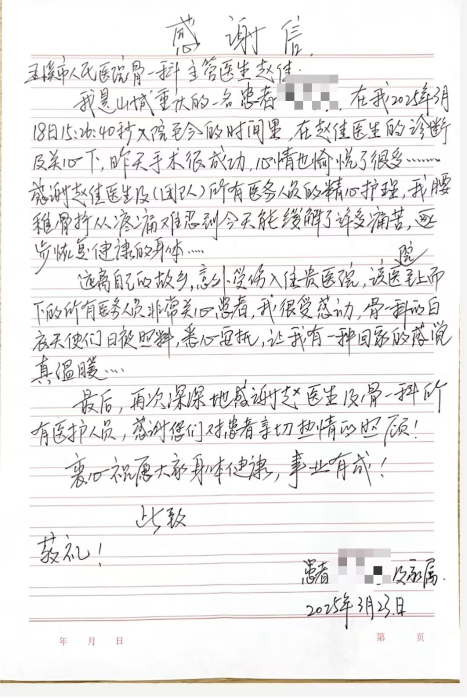 感谢信
玉溪市人民医院骨一科主管医生赵佳:
我是山城重庆的一名患者 , 在我2025年3月
18日15:26:40秒入院至今的时间里, 在赵佳医生的诊断
及关心下, 昨天手术很成功, 心情也愉悦了很多……
感谢赵佳医生及(团队)所有医务人员的精心护理, 我腰
椎骨折从疼痛难忍到今天能缓解了许多痛苦, 逐
步恢复健康的身体……
远离自己的故乡, 意外受伤入住贵医院, 该医院上而
下的所有医务人员非常关心患者, 我很受感动, 骨一科的白
衣天使们日夜照料, 悉心 , 让我有一种回家的感觉
真温暖…
最后, 再次深深地感谢赵医生及骨一科所
有医护人员, 感谢您们对患者亲切热情的照顾!
衷心祝愿大家身体健康, 事业有成!
此致
敬礼!
患者 及家属.
2025年3月23日
年 月 日 第 页